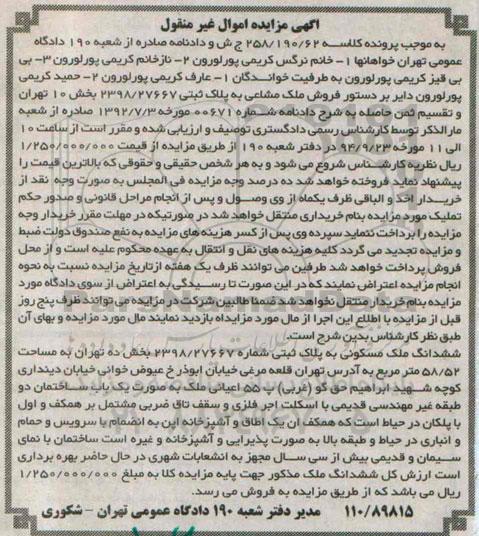 آگهی مزایده اموال غیر منقول
به موجب پرونده کلاسه ۲۵۸/۱۹۰/۶۲ ج ش و دادنامه صادره از شعبه ۱۹۰ دادگاه
عمومی تهران خواهانها ۱- خانم نرگس کریمی پورلورون ۲- نازخانم کریمی پورلورون ۳- بی
بی قیز کریمی پورلورون به طرفیت خواندگان ۱- عارف کریمی پورلورون ۲- حمید کریمی
پورلورون دایر بر دستور فروش ملک مشاعی به پلاک ثبتی ۲۳۹۸/۲۷۶۶۷ بخش ۱۰ تهران
و تقسیم ثمن حاصله به شرح دادنامه شماره ۰۰۶۷۱ مورخه ۱۳۹۲/۷/۳ صادره از شعبه
مارالذکر توسط کارشناس رسمی دادگستری توصیف و ارزیابی شده و مقرر است از ساعت ۱۰
الی ۱۱ مورخه ۹۲/۹/۲۳ در دفتر شعبه ۱۹۰ از طریق مزایده از قیمت ۱/۲۵۰/۰۰۰/۰۰۰
ریال نظریه کارشناس شروع می شود و به هر شخص حقیقی و حقوقی که بالاترین قیمت را
پیشنهاد نماید فروخته خواهد شد ده درصد وجه مزایده فی المجلس به صورت وجه نقد از
خریدار اخذ و الباقی ظرف یکماه از وی وصول و پس از انجام مراحل قانونی و صدور حکم
تملیک مورد مزایده بنام خریداری منتقل خواهد شد در صورتیکه در مهلت مقرر خریدار وجه
مزایده را پرداخت ننماید سپرده وی پس از کسر هزینه های مزایده به نفع صندوق دولت ضبط
و مزایده تجدید می گردد کلیه هزینه های نقل و انتقال به عهده محکوم علیه است و از محل
فروش پرداخت خواهد شد طرفین می توانند ظرف یک هفته از تاریخ مزایده نسبت به نحوه
انجام مزایده اعتراض نمایند که در این صورت تا رسیدگی به اعتراض از سوی دادگاه مورد
مزایده بنام خریدار منتقل نخواهد شد ضمنا طالبین شرکت در مزایده می توانند ظرف پنج روز
قبل از مزایده با اطلاع این اجرا از مال مورد مزایداه بازدید نمایند مال مورد مزایده و بهای آن
طبق نظر کارشناس بدین شرح است.
ششدانگ ملک مسکونی به پلاک ثبتی شماره ۲۳۹۸/۲۷۶۶۷ بخش ده تهران به مساحت
۵۸/۵۲ متر مربع به آدرس تهران قلعه مرغی خیابان ابوذر خ عیوض خوانی خیابان دینداری
کوچه شهید ابراهیم حق گو (غربی) پ ۵۵ اعیانی ملک به صورت یک باب ساختمان دو
طبقه غیر مهندسی قدیمی با اسکلت اجر فلزی و سقف تاق ضربی مشتمل بر همکف و اول
با پلکان در حیاط است که همکف آن یک اطاق و آشپزخانه اپن به انضمام با سرویس و حمام
و انباری در حیاط و طبقه بالا به صورت پذیرایی و آشپزخانه و غیره است ساختمان با نمای
سیمان و قدیمی بیش از سی سال مجهز به انشعابات شهری در حال حاضر بهره برداری
است ارزش کل ششدانگ ملک مذکور جهت پایه مزایده کلا به مبلغ ۱/۲۵۰/۰۰۰/۰۰۰
ریال می باشد که از طریق مزایده به فروش می رسد.
۱۱۰/۸۹۸۱۵ مدیر دفتر شعبه ۱۹۰ دادگاه عمومی تهران - شکوری